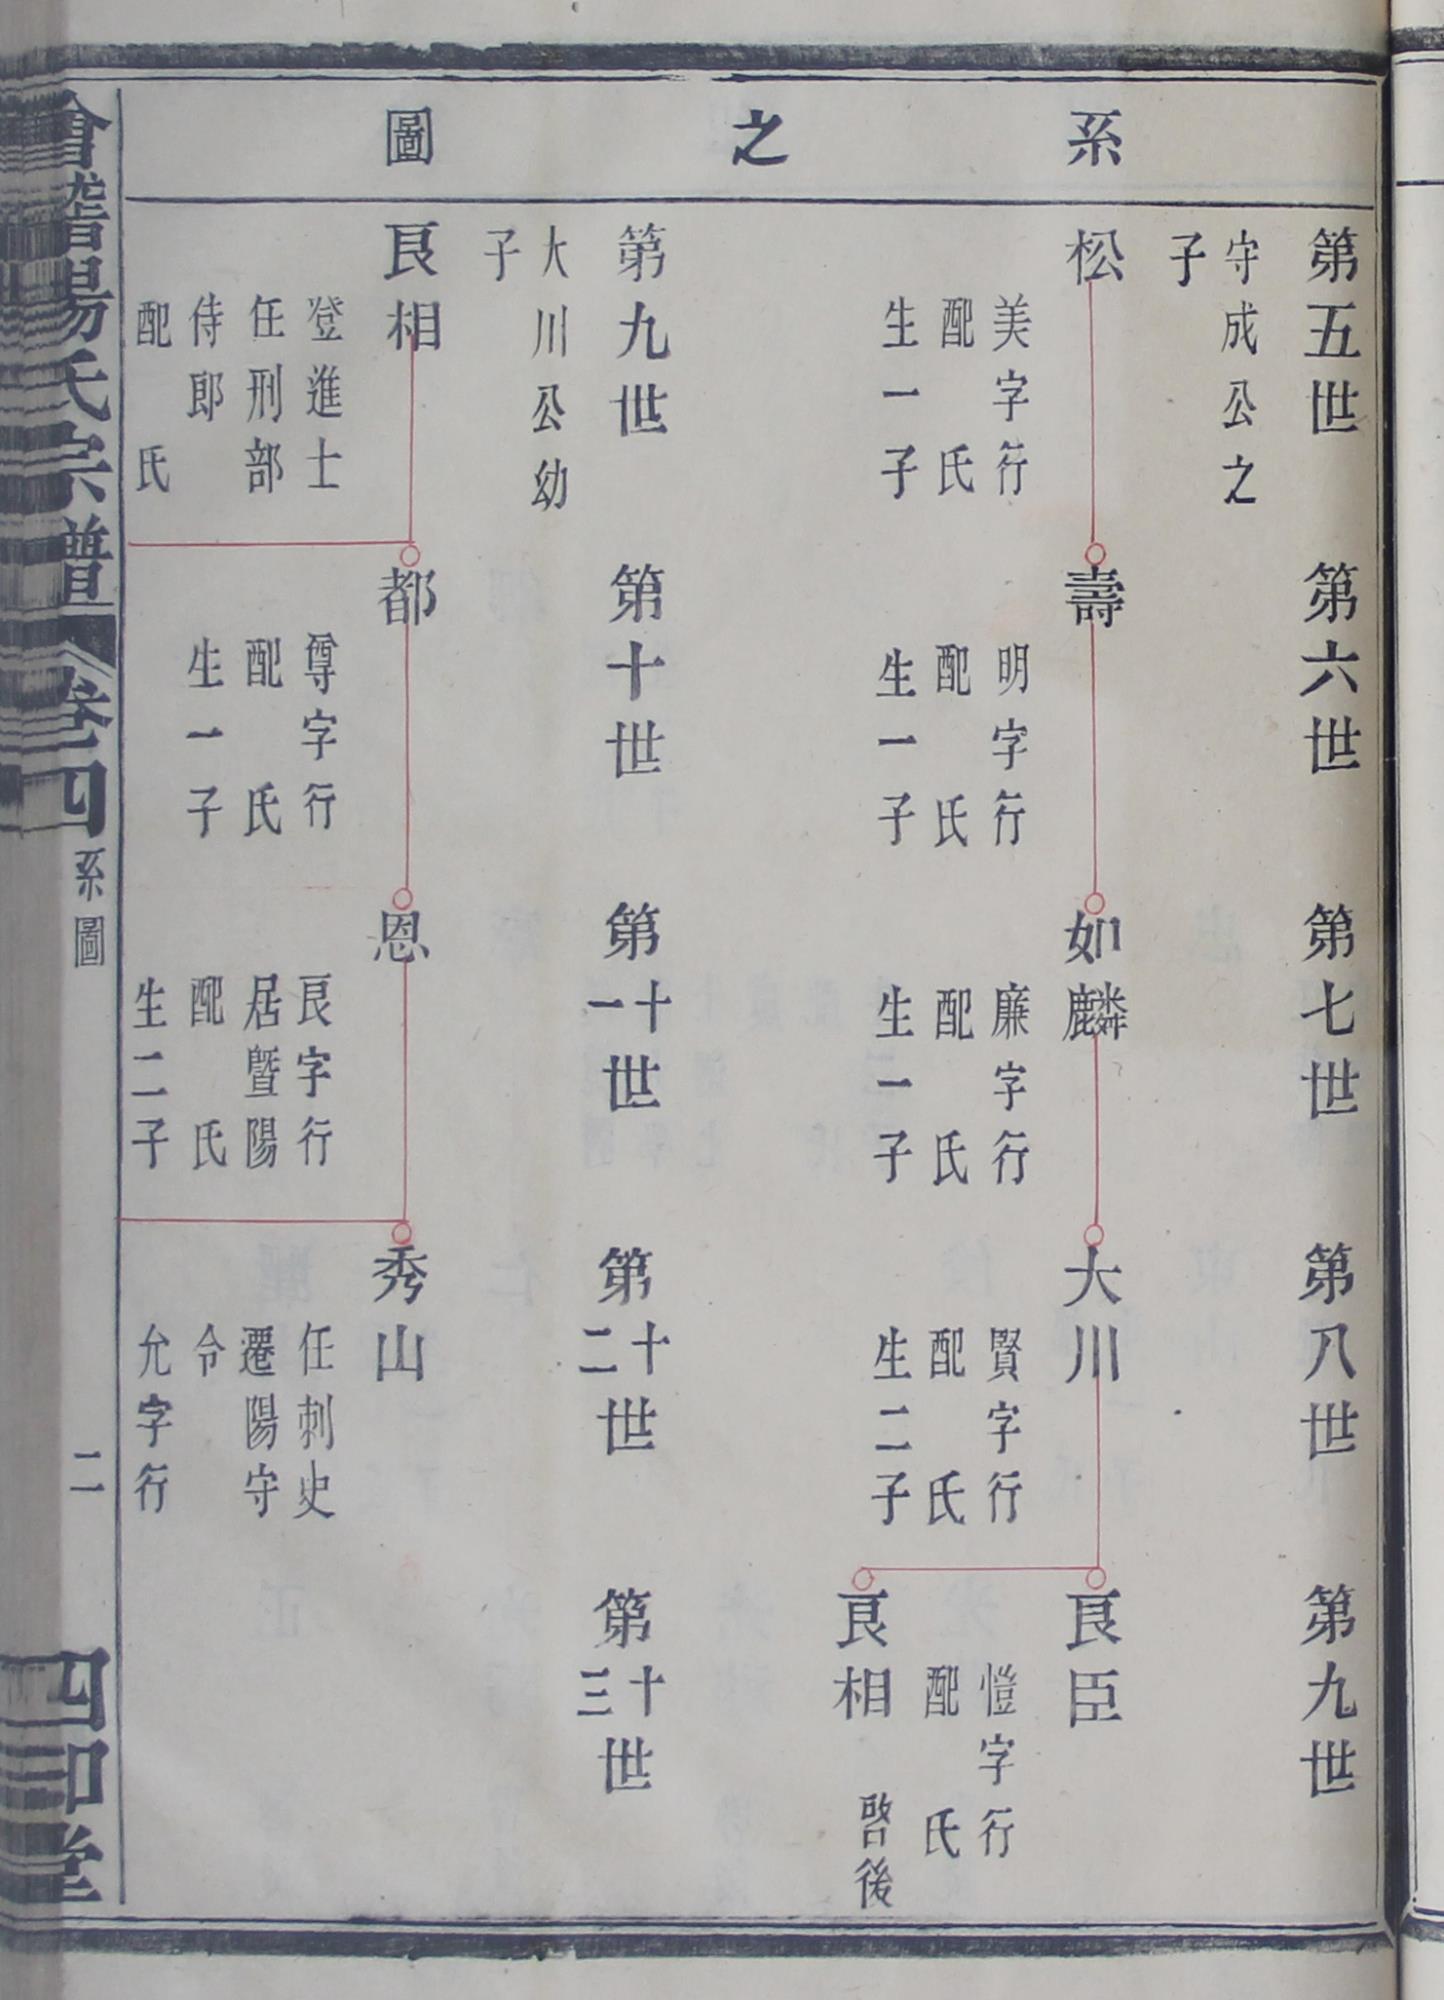 系之圖
第五世
守成公之
子
松
美字行
配　氏
生一子
第六世
壽
明字行
配　氏
生一子
第七世
如麟
廉字行
配　氏
生一子
第八世
大川
賢字行
配　氏
生二子
第九世
良臣
愷字行
配　氏
良相
啓後
第九世
大川公幼
子
良相
登進士
任刑部
侍郎
配　氏
第十世
都
尊字行
配　氏
生一子
第十一世
恩
良字行
居暨陽
配　氏
生二子
第十二世
秀山
任刺史
遷陽守
令
允字行
第十三世
會稽楊氏宗譜
卷四
系圖
二
四知堂